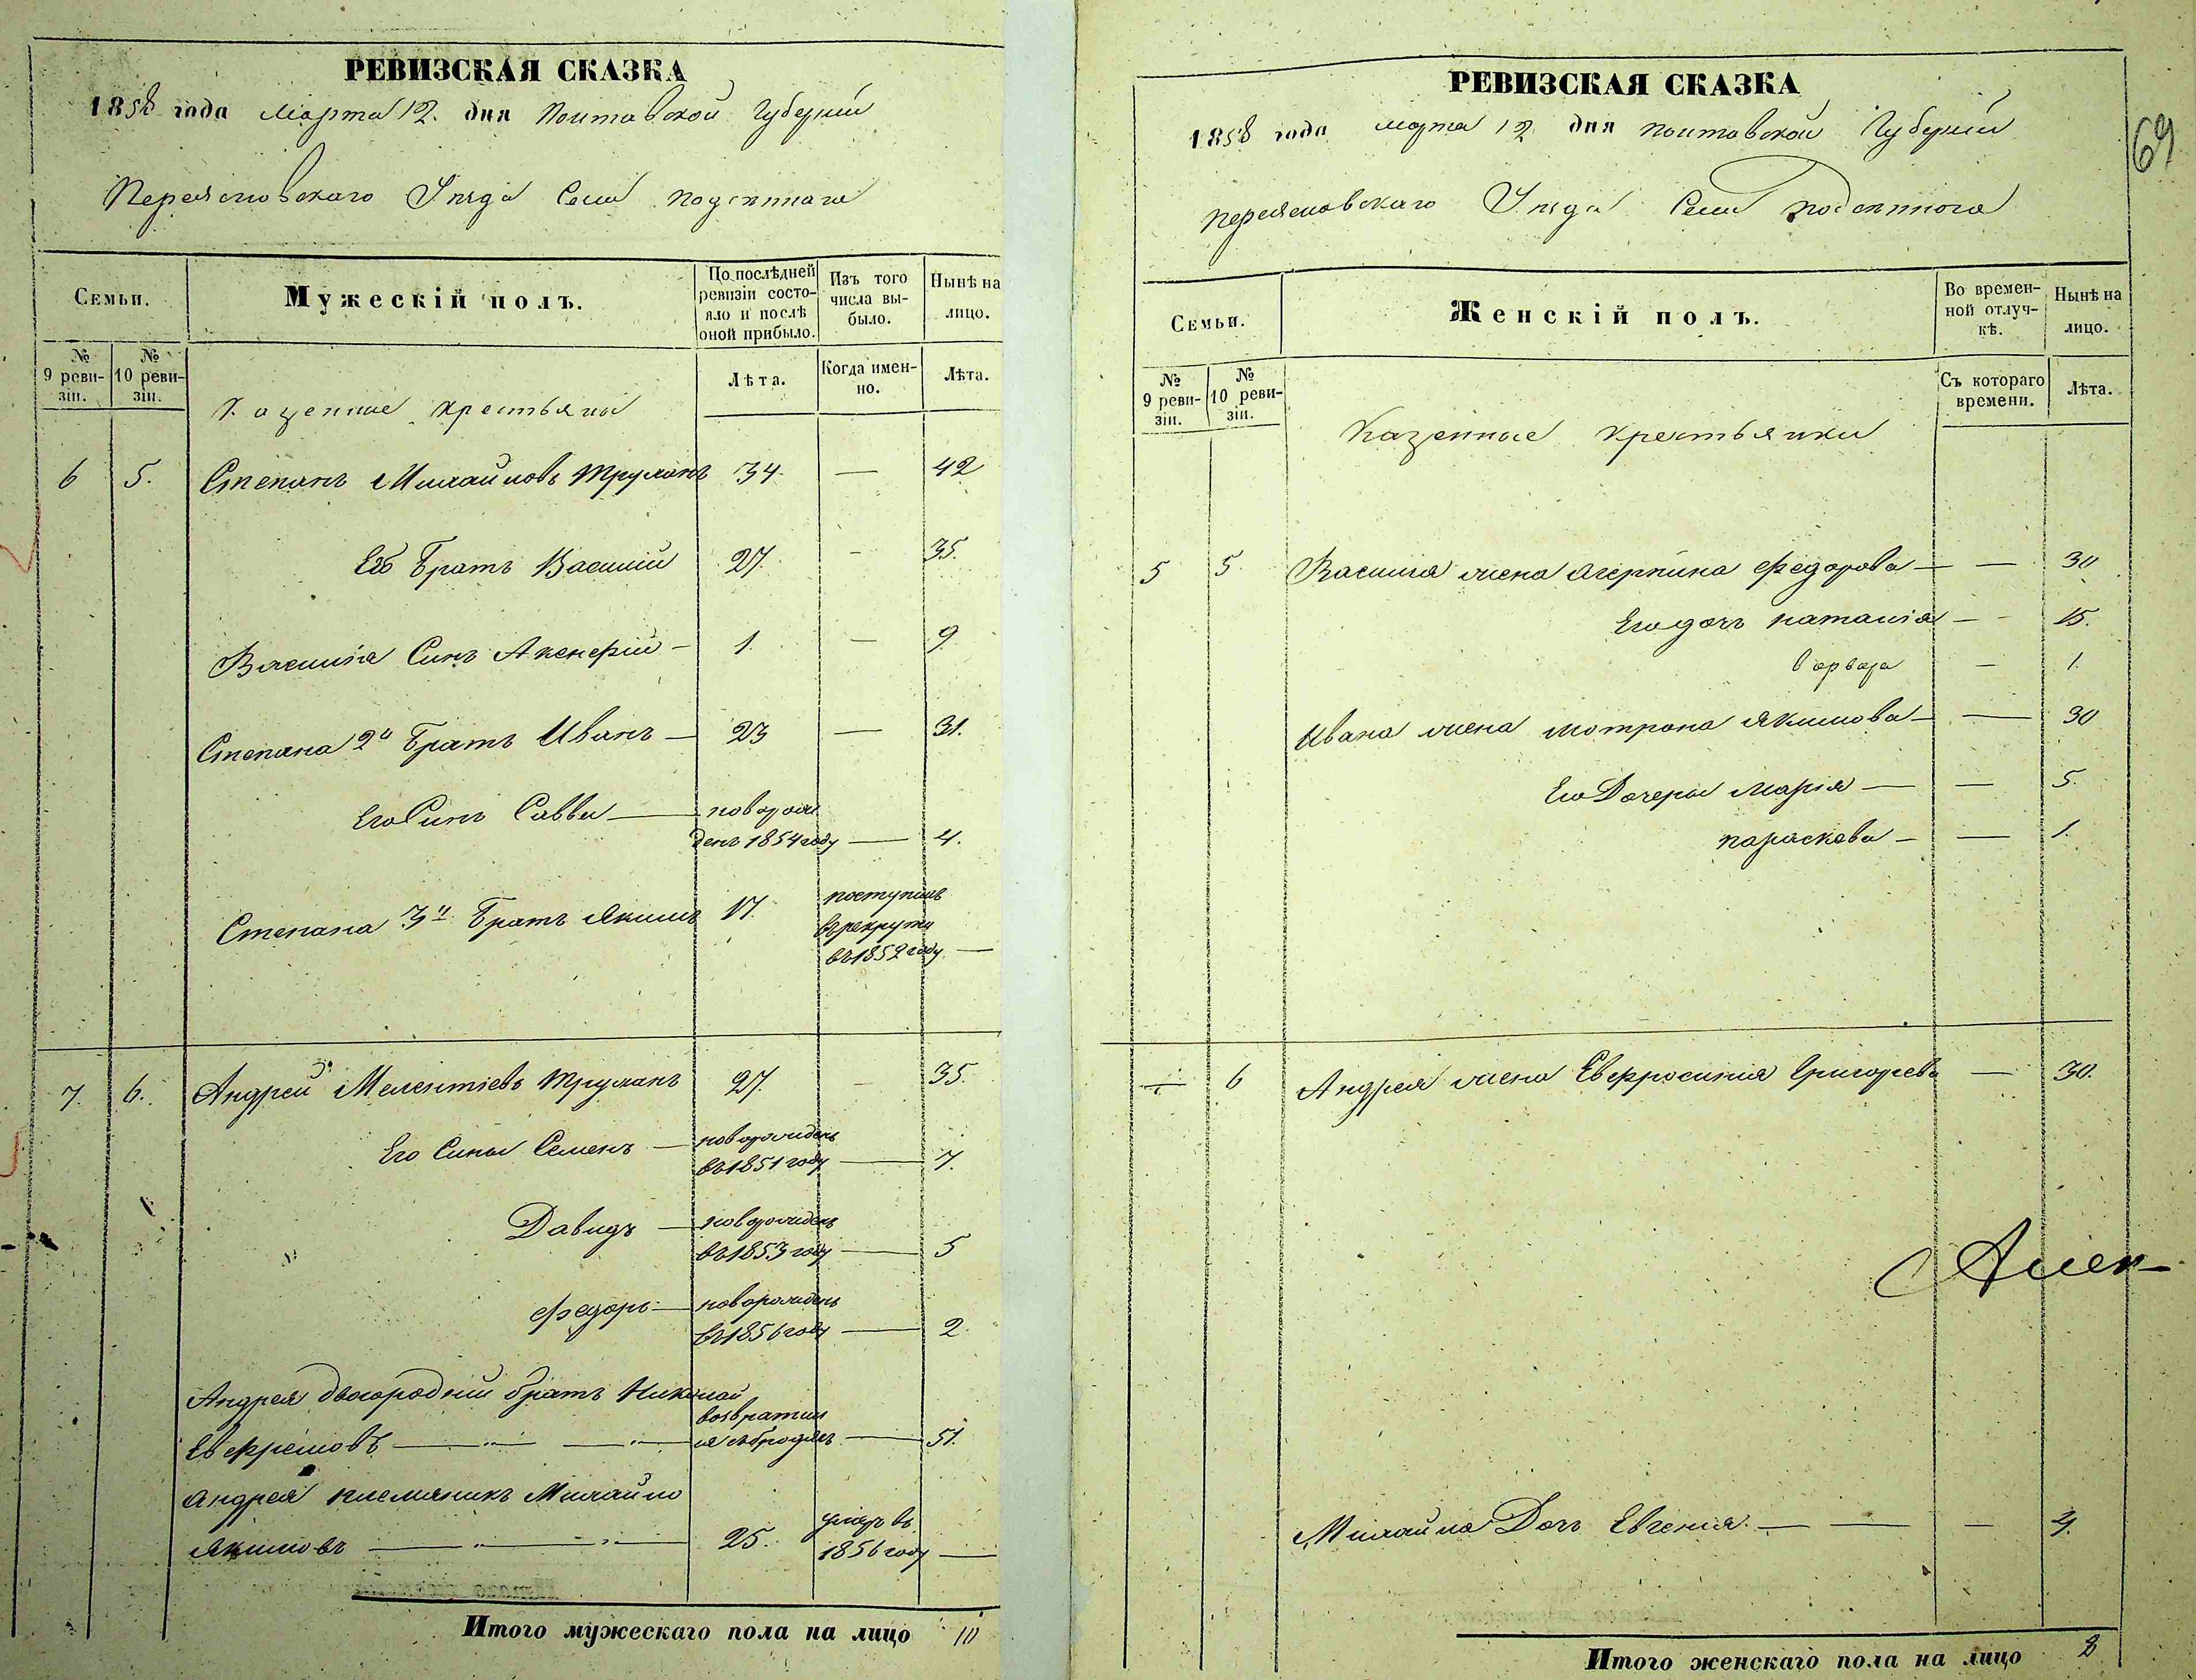 РЕВИЗСКАЯ СКАЗКА
1858 года Марта 12. дня Полтавской Губернии
Переяславскаго Уезда Села Подсиннаго
Семьи.
Мужескій полъ.
По послѣдней ревизіи состояло и послѣ оной прибыло.
Изъ того числа выбыло.
Нынѣ на лицо.
№ 9 ревизіи.
№ 10 ревизіи.
Казенные крестьяны
Лѣта.
Когда именно.
Лѣта.
6 5. Степанъ Михайловъ Труханъ 34. — 42
Его Братъ Василий 27. — 35.
Василия Синъ Аксенфий — 1. — 9
Степана 2й Братъ Иванъ — 23 — 31.
Его Синъ Савва — новорож
денъ 1854 году — 4.
Степана 3й Братъ Якимъ 17. поступилъ
въ рекруты
въ 1852 году —
7. 6. Андрей Мелентіевъ Труханъ 27. — 35.
Его Сины Семенъ — новорожденъ
въ 1851 году — 7.
Давидъ — новорожденъ
въ 1853 году — 5
Федоръ — новорожденъ
въ 1856 году — 2
Андрея двоюродный братъ Николай
Евфремовъ — возвратил
ся съ бродягъ — 51.
Андрея племяникъ Михайло
Якимовъ — 25. умеръ въ
1856 году —
Итого мужескаго пола на лицо 10
РЕВИЗСКАЯ СКАЗКА
69
1858 года марта 12 дня полтавской Губернии
переяславскаго Уезда Села подсинного
Семьи.
Женскій полъ.
Во временной отлучкѣ.
Нынѣ на лицо.
№ 9 ревизіи.
№ 10 ревизіи.
Казенные крестьянки
Съ котораго времени.
Лѣта.
5 5. Василия жена Агрепина Федорова — — 30
Его дочъ наталія — 15.
варвара — 1.
Ивана жена мотрона Якимова — — 30
Его Дочеры Марія — — 5.
параскева — — 1.
— 6 Андрея жена Евфросиния Григорева — 30.
Алек-
Михайла Дочъ Евгения — — —
Итого женскаго пола на лицо 8